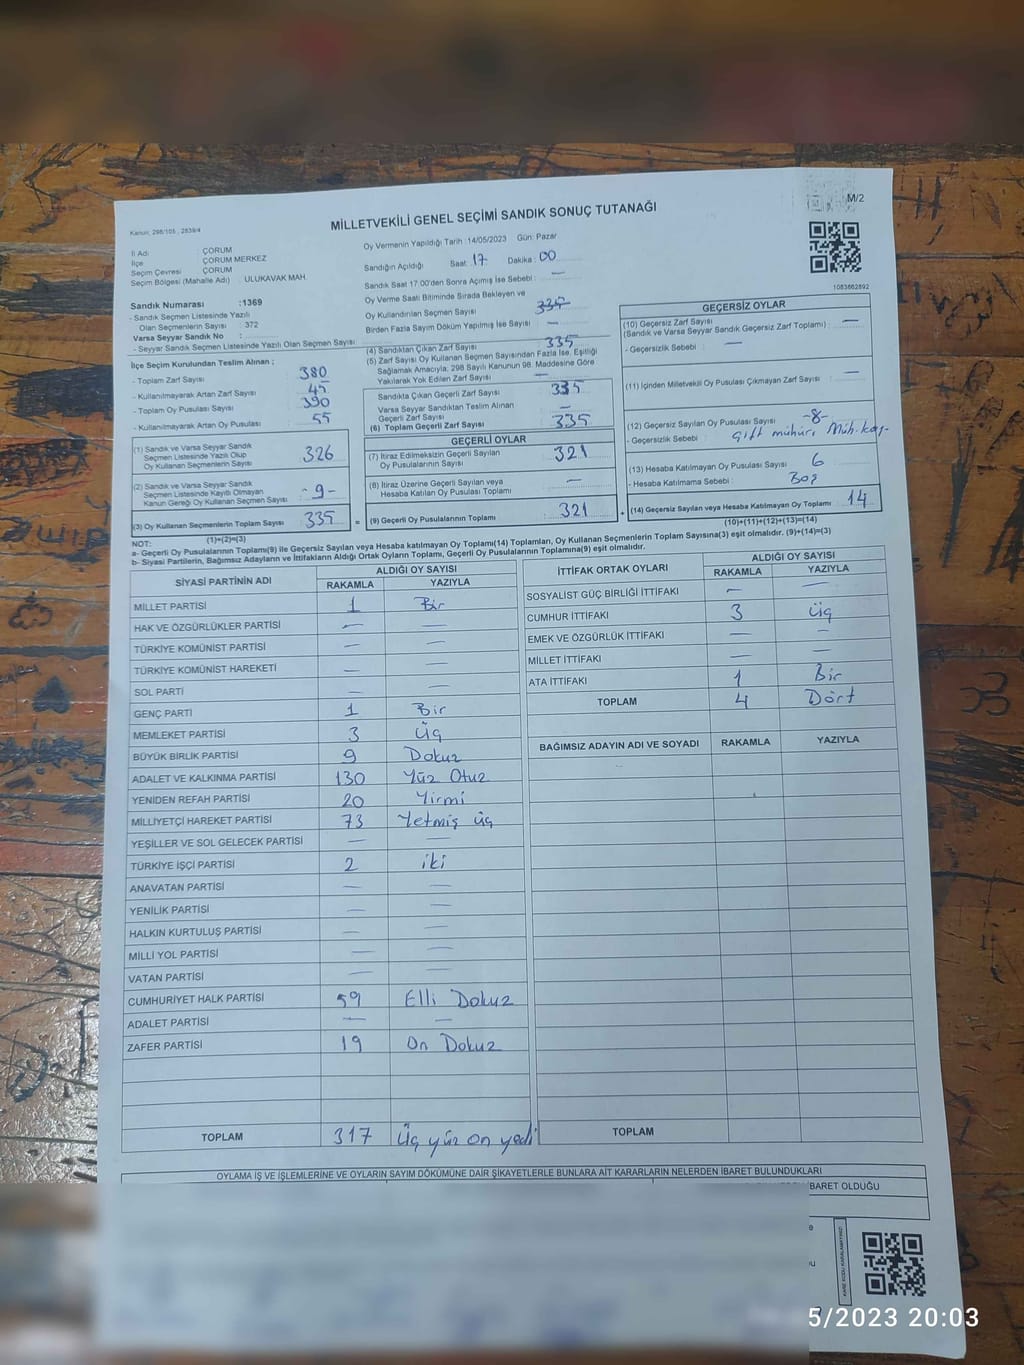 M/2
Kanun: 298/105 , 2839/4
MİLLETVEKİLİ GENEL SEÇİMİ SANDIK SONUÇ TUTANAĞI
İl Adı : ÇORUM
İlçe : ÇORUM MERKEZ
Seçim Çevresi : ÇORUM
Seçim Bölgesi (Mahalle Adı) : ULUKAVAK MAH.
Oy Vermenin Yapıldığı Tarih :14/05/2023 Gün: Pazar
Sandığın Açıldığı Saat: 17 Dakika : 00
Sandık Saat 17.00'den Sonra Açılmış İse Sebebi : —
Oy Verme Saati Bitiminde Sırada Bekleyen ve
Oy Kullandırılan Seçmen Sayısı
Birden Fazla Sayım Döküm Yapılmış İse Sayısı : —
1083662892
Sandık Numarası :1369
- Sandık Seçmen Listesinde Yazılı
Olan Seçmenlerin Sayısı : 372
Varsa Seyyar Sandık No :
- Seyyar Sandık Seçmen Listesinde Yazılı Olan Seçmen Sayısı :
İlçe Seçim Kurulundan Teslim Alınan ;
- Toplam Zarf Sayısı 380
- Kullanılmayarak Artan Zarf Sayısı 45
- Toplam Oy Pusulası Sayısı 390
- Kullanılmayarak Artan Oy Pusulası 55
(1) Sandık ve Varsa Seyyar Sandık
Seçmen Listesinde Yazılı Olup
Oy Kullanan Seçmenlerin Sayısı 326
(2) Sandık ve Varsa Seyyar Sandık
Seçmen Listesinde Kayıtlı Olmayan
Kanun Gereği Oy Kullanan Seçmen Sayısı -9-
(3) Oy Kullanan Seçmenlerin Toplam Sayısı 335
(1)+(2)=(3)
(4) Sandıktan Çıkan Zarf Sayısı 335
(5) Zarf Sayısı Oy Kullanan Seçmen Sayısından Fazla İse, Eşitliği
Sağlamak Amacıyla, 298 Sayılı Kanunun 98. Maddesine Göre
Yakılarak Yok Edilen Zarf Sayısı —
Sandıkta Çıkan Geçerli Zarf Sayısı 335
Varsa Seyyar Sandıktan Teslim Alınan
Geçerli Zarf Sayısı —
(6) Toplam Geçerli Zarf Sayısı 335
GEÇERLİ OYLAR
(7) İtiraz Edilmeksizin Geçerli Sayılan
Oy Pusulalarının Sayısı 321
(8) İtiraz Üzerine Geçerli Sayılan veya
Hesaba Katılan Oy Pusulası Toplamı —
= (9) Geçerli Oy Pusulalarının Toplamı 321 +
GEÇERSİZ OYLAR
(10) Geçersiz Zarf Sayısı —
(Sandık ve Varsa Seyyar Sandık Geçersiz Zarf Toplamı) :
- Geçersizlik Sebebi : —
(11) İçinden Milletvekili Oy Pusulası Çıkmayan Zarf Sayısı : —
(12) Geçersiz Sayılan Oy Pusulası Sayısı : -8-
- Geçersizlik Sebebi : Çift mühür,
(13) Hesaba Katılmayan Oy Pusulası Sayısı : 6
- Hesaba Katılmama Sebebi : Boş
(14) Geçersiz Sayılan veya Hesaba Katılmayan Oy Toplamı : 14
(10)+(11)+(12)+(13)=(14)
NOT:
a- Geçerli Oy Pusulalarının Toplamı(9) ile Geçersiz Sayılan veya Hesaba katılmayan Oy Toplamı(14) Toplamları, Oy Kullanan Seçmenlerin Toplam Sayısına(3) eşit olmalıdır. (9)+(14)=(3)
b- Siyasi Partilerin, Bağımsız Adayların ve İttifakların Aldığı Oy Ortak Oyların Toplamı, Geçerli Oy Pusulalarının Toplamına(9) eşit olmalıdır.
SİYASİ PARTİNİN ADI ALDIĞI OY SAYISI
RAKAMLA YAZIYLA
MİLLET PARTİSİ 1 Bir
HAK VE ÖZGÜRLÜKLER PARTİSİ — —
TÜRKİYE KOMÜNİST PARTİSİ — —
TÜRKİYE KOMÜNİST HAREKETİ — —
SOL PARTİ — —
GENÇ PARTİ 1 Bir
MEMLEKET PARTİSİ 3 Üç
BÜYÜK BİRLİK PARTİSİ 9 Dokuz
ADALET VE KALKINMA PARTİSİ 130 Yüz Otuz
YENİDEN REFAH PARTİSİ 20 Yirmi
MİLLİYETÇİ HAREKET PARTİSİ 73 Yetmiş üç
YEŞİLLER VE SOL GELECEK PARTİSİ — —
TÜRKİYE İŞÇİ PARTİSİ 2 iki
ANAVATAN PARTİSİ — —
YENİLİK PARTİSİ — —
HALKIN KURTULUŞ PARTİSİ — —
MİLLİ YOL PARTİSİ — —
VATAN PARTİSİ — —
CUMHURİYET HALK PARTİSİ 59 Elli Dokuz
ADALET PARTİSİ — —
ZAFER PARTİSİ 19 On Dokuz
TOPLAM 317 Üç yüz on yedi
İTTİFAK ORTAK OYLARI ALDIĞI OY SAYISI
RAKAMLA YAZIYLA
SOSYALİST GÜÇ BİRLİĞİ İTTİFAKI — —
CUMHUR İTTİFAKI 3 Üç
EMEK VE ÖZGÜRLÜK İTTİFAKI — —
MİLLET İTTİFAKI — —
ATA İTTİFAKI 1 Bir
TOPLAM 4 Dört
BAĞIMSIZ ADAYIN ADI VE SOYADI RAKAMLA YAZIYLA
TOPLAM
OYLAMA İŞ VE İŞLEMLERİNE VE OYLARIN SAYIM DÖKÜMÜNE DAİR ŞİKAYETLERLE BUNLARA AİT KARARLARIN NELERDEN İBARET BULUNDUKLARI
İBARET OLDUĞU
KARE KODU KARALAMAYINIZ!
5/2023 20:03